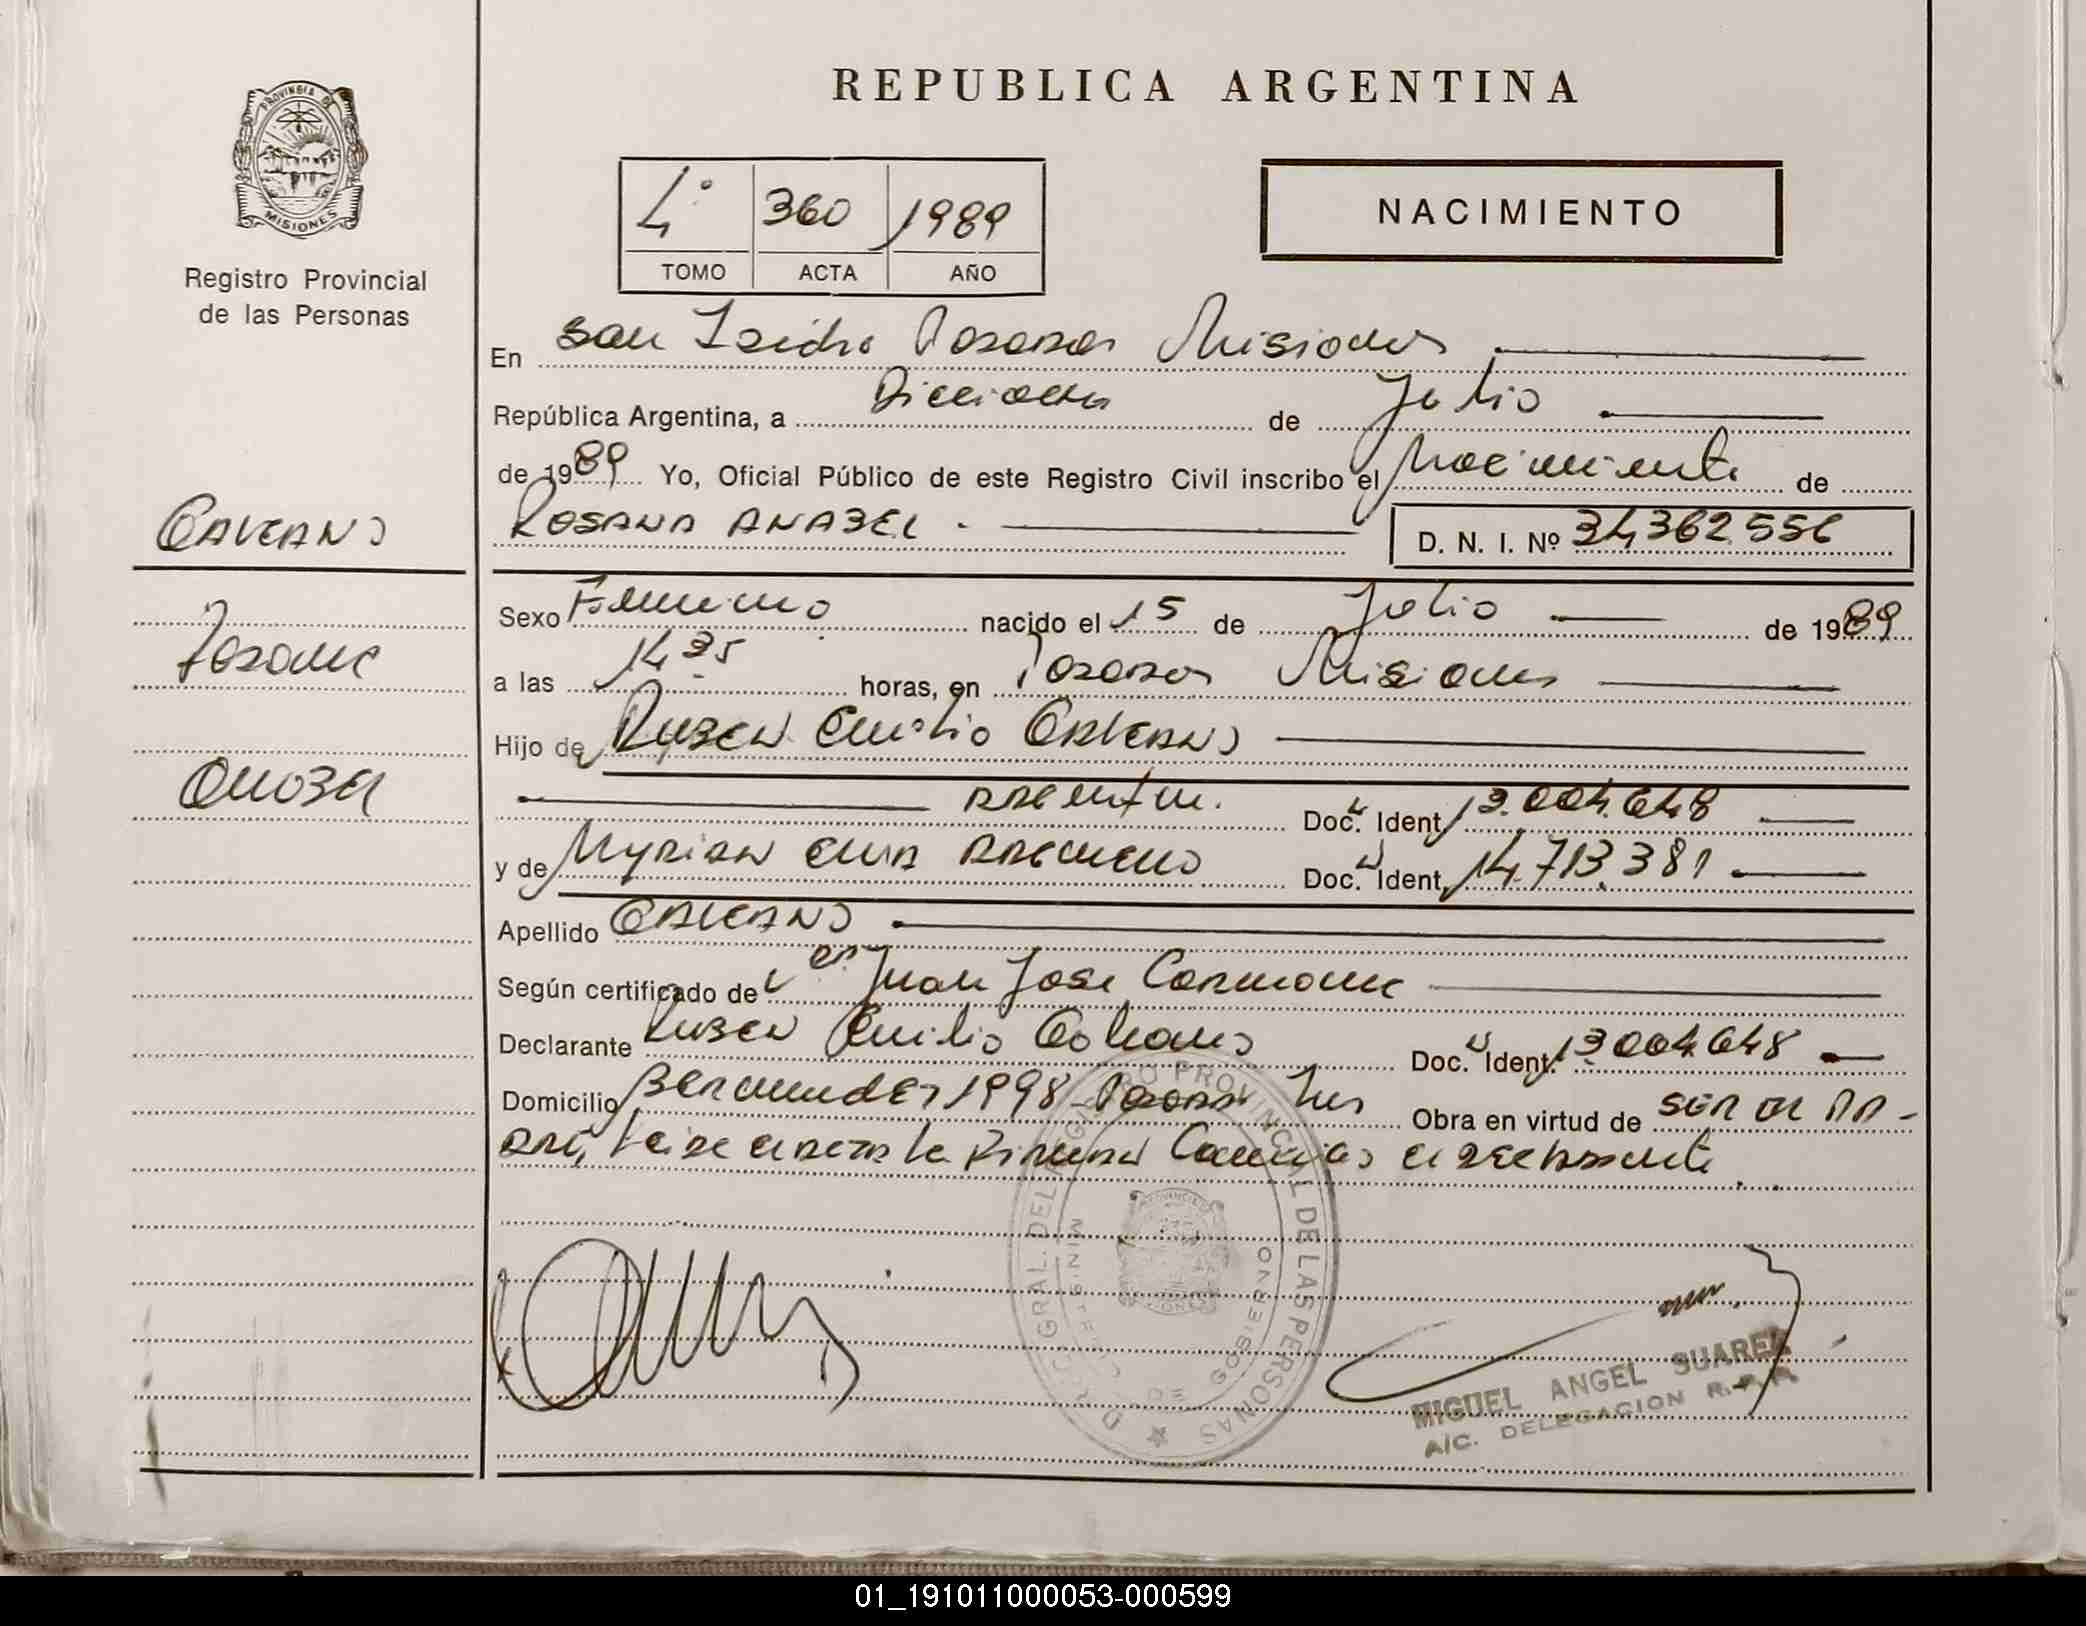 REPUBLICA ARGENTINA
PROVINCIA DE
MISIONES
Registro Provincial
de las Personas
4° 360 1989
TOMO ACTA AÑO
NACIMIENTO
En San Isidro Posadas Misiones
República Argentina, a Dieciocho de Julio
de 1989 Yo, Oficial Público de este Registro Civil inscribo el Nacimiento de
ROSANA ANABEL D. N. I. Nº 34362556
GALEANO
Rosana
Anabel
Sexo Femenino nacido el 15 de Julio de 1989
a las 14 35 horas, en Posadas Misiones
Hijo de Ruben Emilio GALEANO
Argentin. Doc. Ident. 13.004.648
y de Myrian Doc. Ident. 14.713.381
Apellido GALEANO
Según certificado de Juan Jose
Declarante Ruben Emilio Galeano Doc. Ident. 13004648
Domicilio Bermudez 1998 Posadas Mnes Obra en virtud de SER EL PA-
DRE, firman Conmigo
DREC. GRAL. DEL REGISTRO PROVINCIAL DE LAS PERSONAS
MINISTERIO DE GOBIERNO
MIGUEL ANGEL SUAREZ
A/C. DELEGACION R.P.P.
01_191011000053-000599